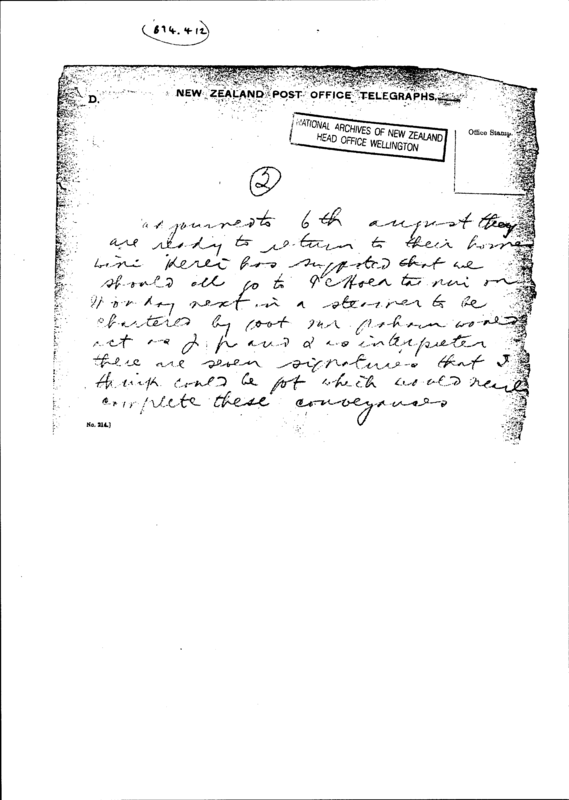 (614.412)
D.
NEW ZEALAND POST OFFICE TELEGRAPHS.
NATIONAL ARCHIVES OF NEW ZEALAND
HEAD OFFICE WELLINGTON
Office Stamp.
2
adjourned to 6th august they
are ready to return to their homes
wini Kerei has suggested that we
should all go to
on
Monday next in a steamer to be
chartered by govt mr graham would
act as J.P and I as interpreter
there are seven signatures that I
think could be got which would nearly
complete these conveyances
No. 214.)